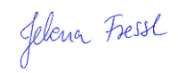 Jelena Fressl